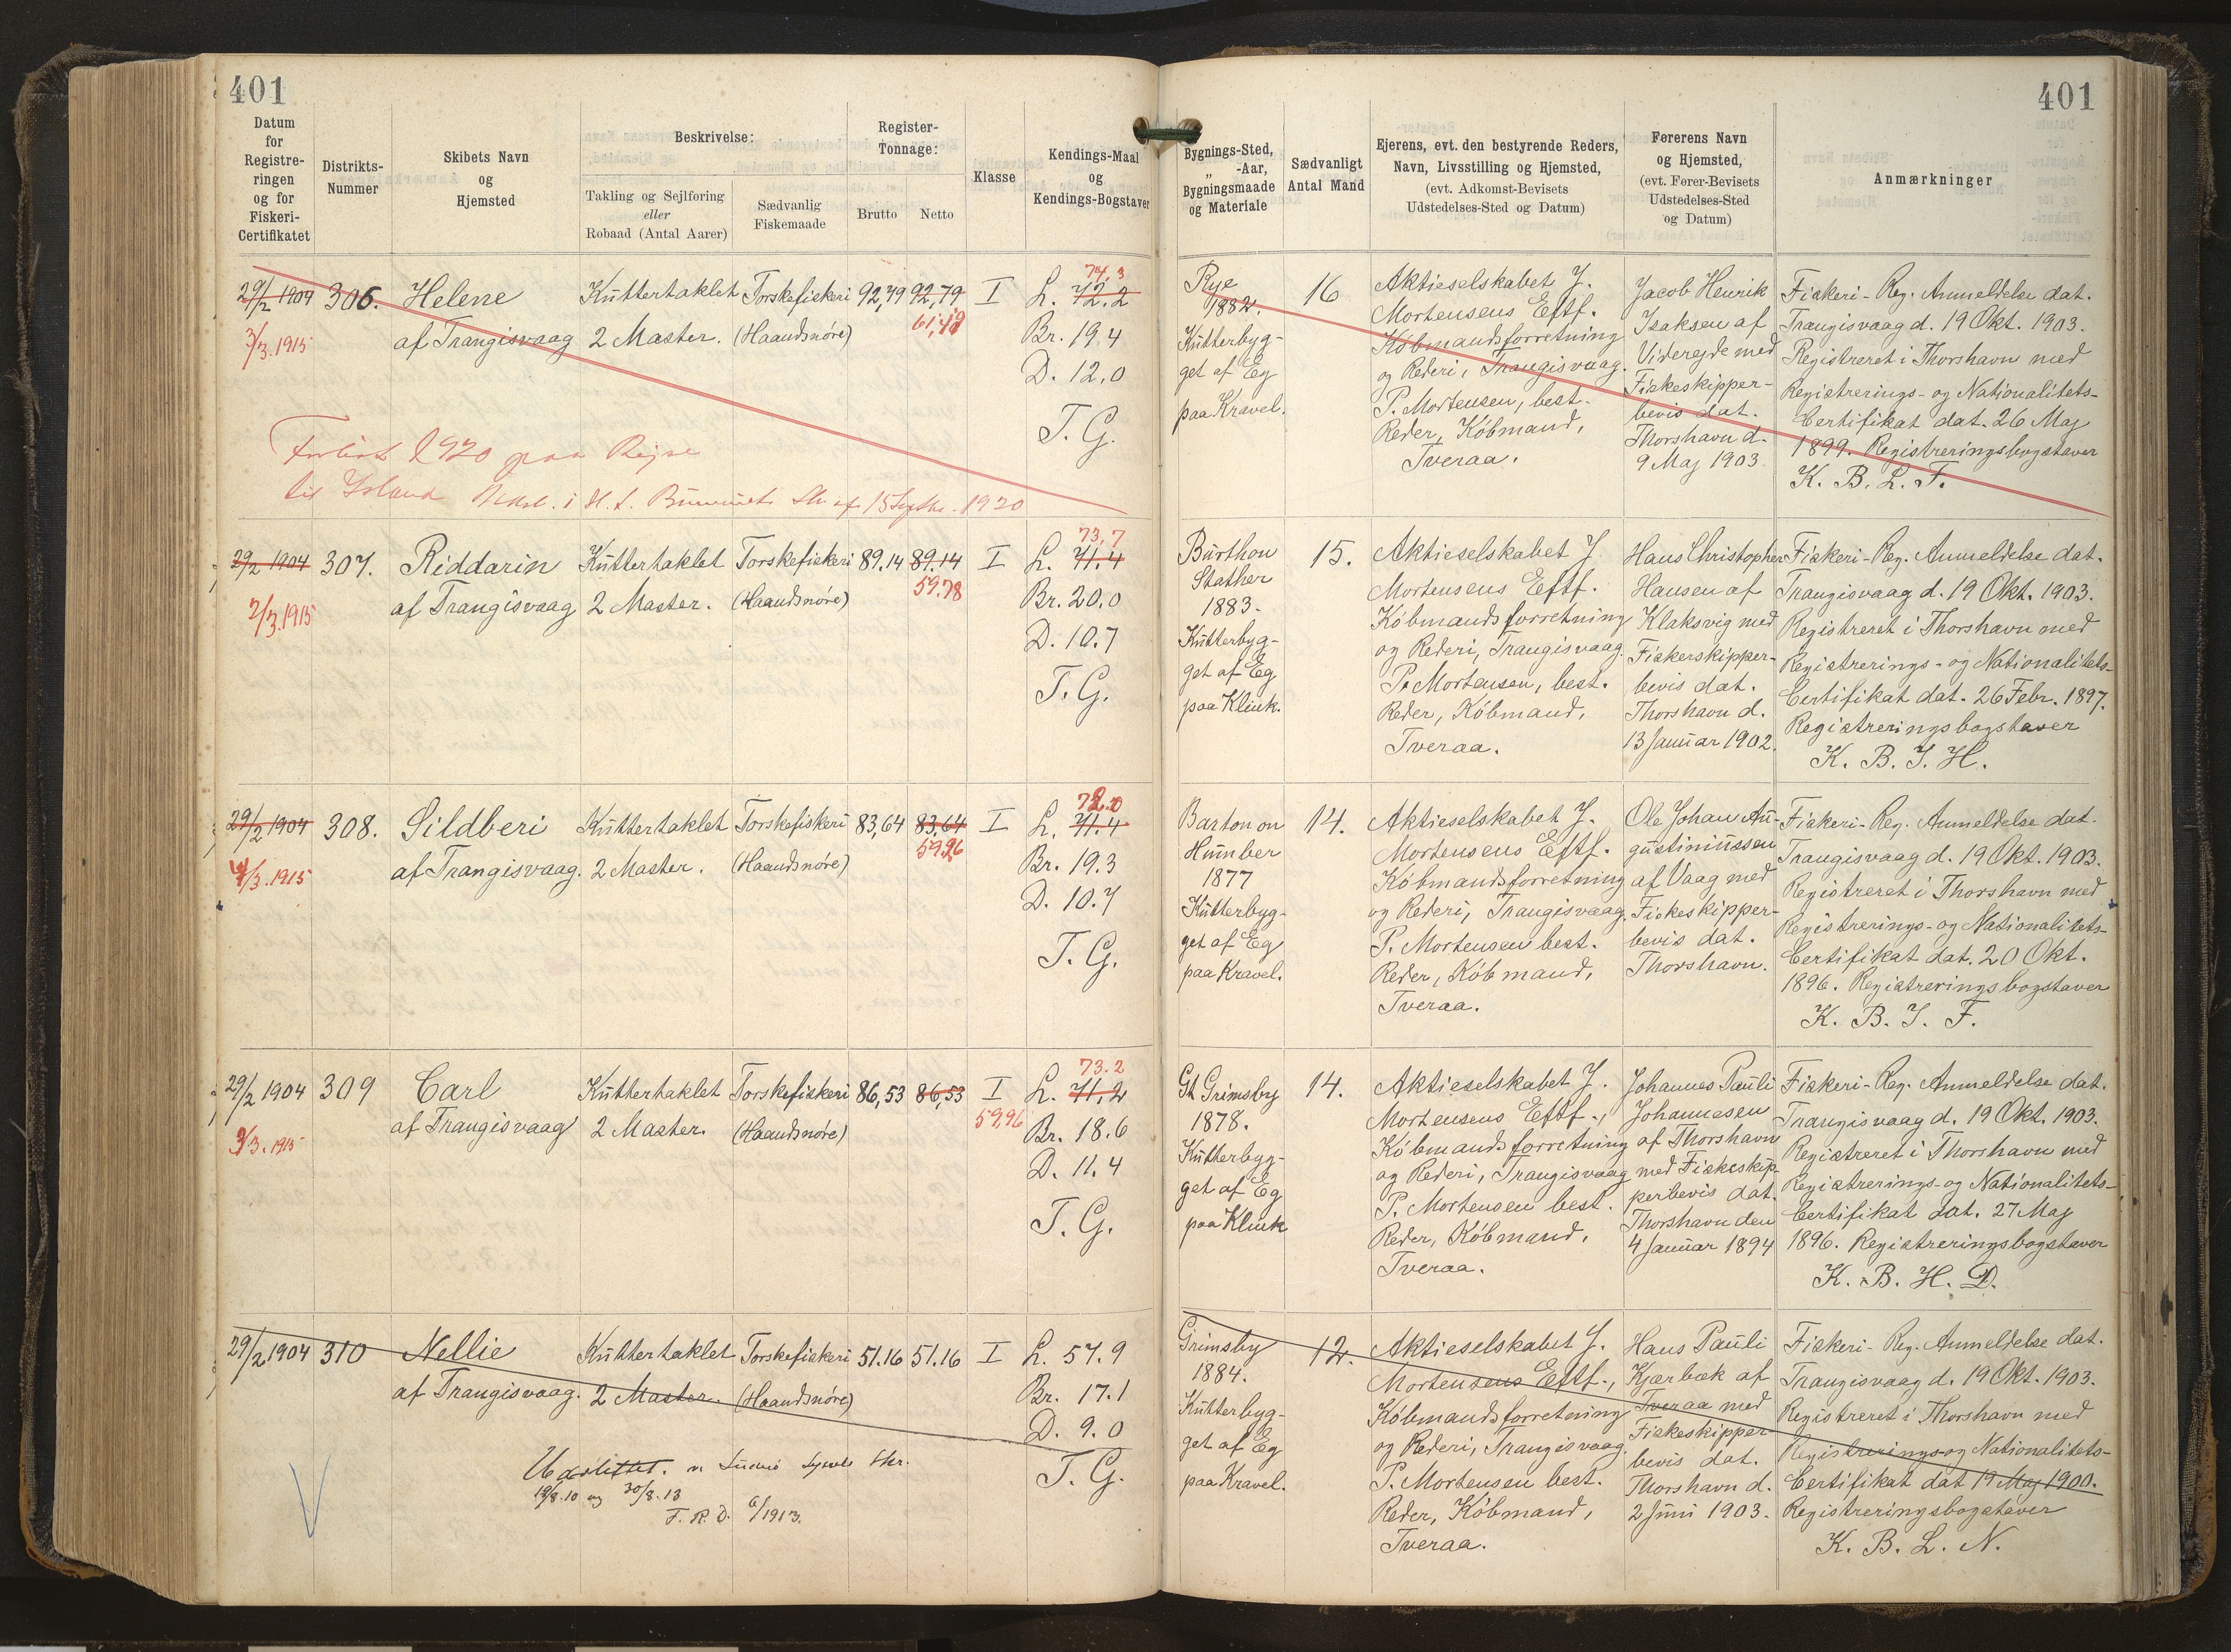 401
401
Datum
for
Registre-
ringen
og for
Fiskeri-
Certifikatet
Distrikts-
Nummer
Skibets Navn
og
Hjemsted
Beskrivelse:
Takling og Sejlføring
eller
Robaad (Antal Aarer)
Sædvanlig
Fiskemaade
Register-
Tonnage:
Brutto
Netto
Klasse
Kendings-Maal
og
Kendings-Bogstaver
Bygnings-Sted,
„ -Aar,
Bygningsmaade
og Materiale
Sædvanligt
Antal Mand
Ejerens, evt. den bestyrende Reders,
Navn, Livsstilling og Hjemsted,
(evt. Adkomst-Bevisets
Udstedelses-Sted og Datum)
Førerens Navn
og Hjemsted,
(evt. Fører-Bevisets
Udstedelses-Sted
og Datum)
Anmærkninger
29/2 1904
3/3. 1915
306.
Helene
af Trangisvaag
Kuttertaklet
2 Master.
Torskefiskeri
(Haandsnøre)
92,79
92,79
61,49
I
74,3
L. 72.2
Br. 19.4
D. 12.0
T. G.
Rye
1882.
Kutterbyg-
get af Eg
paa Kravel.
16
Aktieselskabet J.
Mortensens Eftf.
Købmandsforretning
og Rederi, Trangisvaag.
P. Mortensen, best.
Reder, Købmand,
Tveraa.
Jacob Henrik
Isaksen af
Videreide med
Fiskeskipper-
bevis dat.
Thorshavn d.
9 Maj 1903.
Fiskeri-Reg. Anmeldelse dat.
Trangisvaag d. 19 Okt. 1903.
Registreret i Thorshavn med
Registrerings- og Nationalitets-
Certifikat dat. 26 Maj
1899. Registreringsbogstaver
K. B. L. F.
Forlist 1920 paa Rejse
til Island
15 Septbr. 1920
29/2 1904
2/3. 1915
307.
Riddarin
af Trangisvaag
Kuttertaklet
2 Master.
Torskefiskeri
(Haandsnøre)
89.14
89.14
59.78
I
73,7
L. 71.4
Br. 20.0
D. 10.7
T. G.
Burthon
Stather
1883.
Kutterbyg-
get af Eg
paa Klink.
15.
Aktieselskabet J.
Mortensens Eftf.
Købmandsforretning
og Rederi, Trangisvaag.
P. Mortensen, best.
Reder, Købmand,
Tveraa.
Hans Christopher
Hansen af
Klaksvig med
Fiskerskipper-
bevis dat.
Thorshavn d.
13 Januar 1902.
Fiskeri-Reg. Anmeldelse dat.
Trangisvaag d. 19 Okt. 1903.
Registreret i Thorshavn med
Registrerings- og Nationalitets-
Certifikat dat. 26 Febr. 1897.
Registreringsbogstaver
K. B. J. H.
29/2 1904
4/3. 1915
308.
Sildberi
af Trangisvaag.
Kuttertaklet
2 Master.
Torskefiskeri
(Haandsnøre)
83,64
83,64
59,26
I
72.0
L. 71.4
Br. 19.3
D. 10.7
T. G.
Barton on
Humber
1877
Kutterbyg-
get af Eg
paa Kravel.
14.
Aktieselskabet J.
Mortensens Eftf.
Købmandsforretning
og Rederi, Trangisvaag.
P. Mortensen best.
Reder, Købmand,
Tveraa.
Ole Johan Au-
gustinussen
af Vaag med
Fiskeskipper-
bevis dat.
Thorshavn.
Fiskeri-Reg. Anmeldelse dat.
Trangisvaag d. 19 Okt. 1903.
Registreret i Thorshavn med
Registrerings- og Nationalitets-
Certifikat dat. 20 Okt.
1896. Registreringsbogstaver
K. B. J. F.
29/2 1904
9/3. 1915
309
Carl
af Trangisvaag
Kuttertaklet
2 Master.
Torskefiskeri
(Haandsnøre)
86,53
86,53
I
59,96
73.2
L. 71,2
Br. 18.6
D. 11.4
T. G.
Gt Grimsby
1878.
Kutterbyg-
get af Eg
paa Klink
14.
Aktieselskabet J.
Mortensens Eftf.,
Købmandsforretning
og Rederi, Trangisvaag
P. Mortensen best.
Reder, Købmand,
Tveraa.
Johannes Pauli
Johannesen
af Thorshavn
med Fiskeskip-
perbevis dat.
Thorshavn den
4 Januar 1894
Fiskeri-Reg. Anmeldelse dat.
Trangisvaag d. 19 Okt. 1903.
Registreret i Thorshavn med
Registrerings- og Nationalitets-
Certifikat dat. 27 Maj
1896. Registreringsbogstaver
K. B. H. D.
29/2 1904
310
Nellie
af Trangisvaag.
Kuttertaklet
2 Master.
Torskefiskeri
(Haandsnøre)
51.16
51.16
I
L. 57.9
Br. 17.1
D. 9.0
T. G.
Grimsby
1884.
Kutterbyg-
get af Eg
paa Kravel.
12.
Aktieselskabet J.
Mortensens Eftf.,
Købmandsforretning
og Rederi, Trangisvaag.
P. Mortensen best.
Reder, Købmand,
Tveraa.
Hans Pauli
Kjærbæk af
Tveraa med
Fiskeskipper
bevis dat.
Thorshavn d.
2 Juni 1903.
Fiskeri-Reg. Anmeldelse dat.
Trangisvaag d. 19 Okt. 1903.
Registreret i Thorshavn med
Registrerings- og Nationalitets-
Certifikat dat 19 Maj 1900.
Registreringsbogstaver
K. B. L. N.
Udslettet.
19/8.10 og 30/8.13
F. R. D. 6/1913.